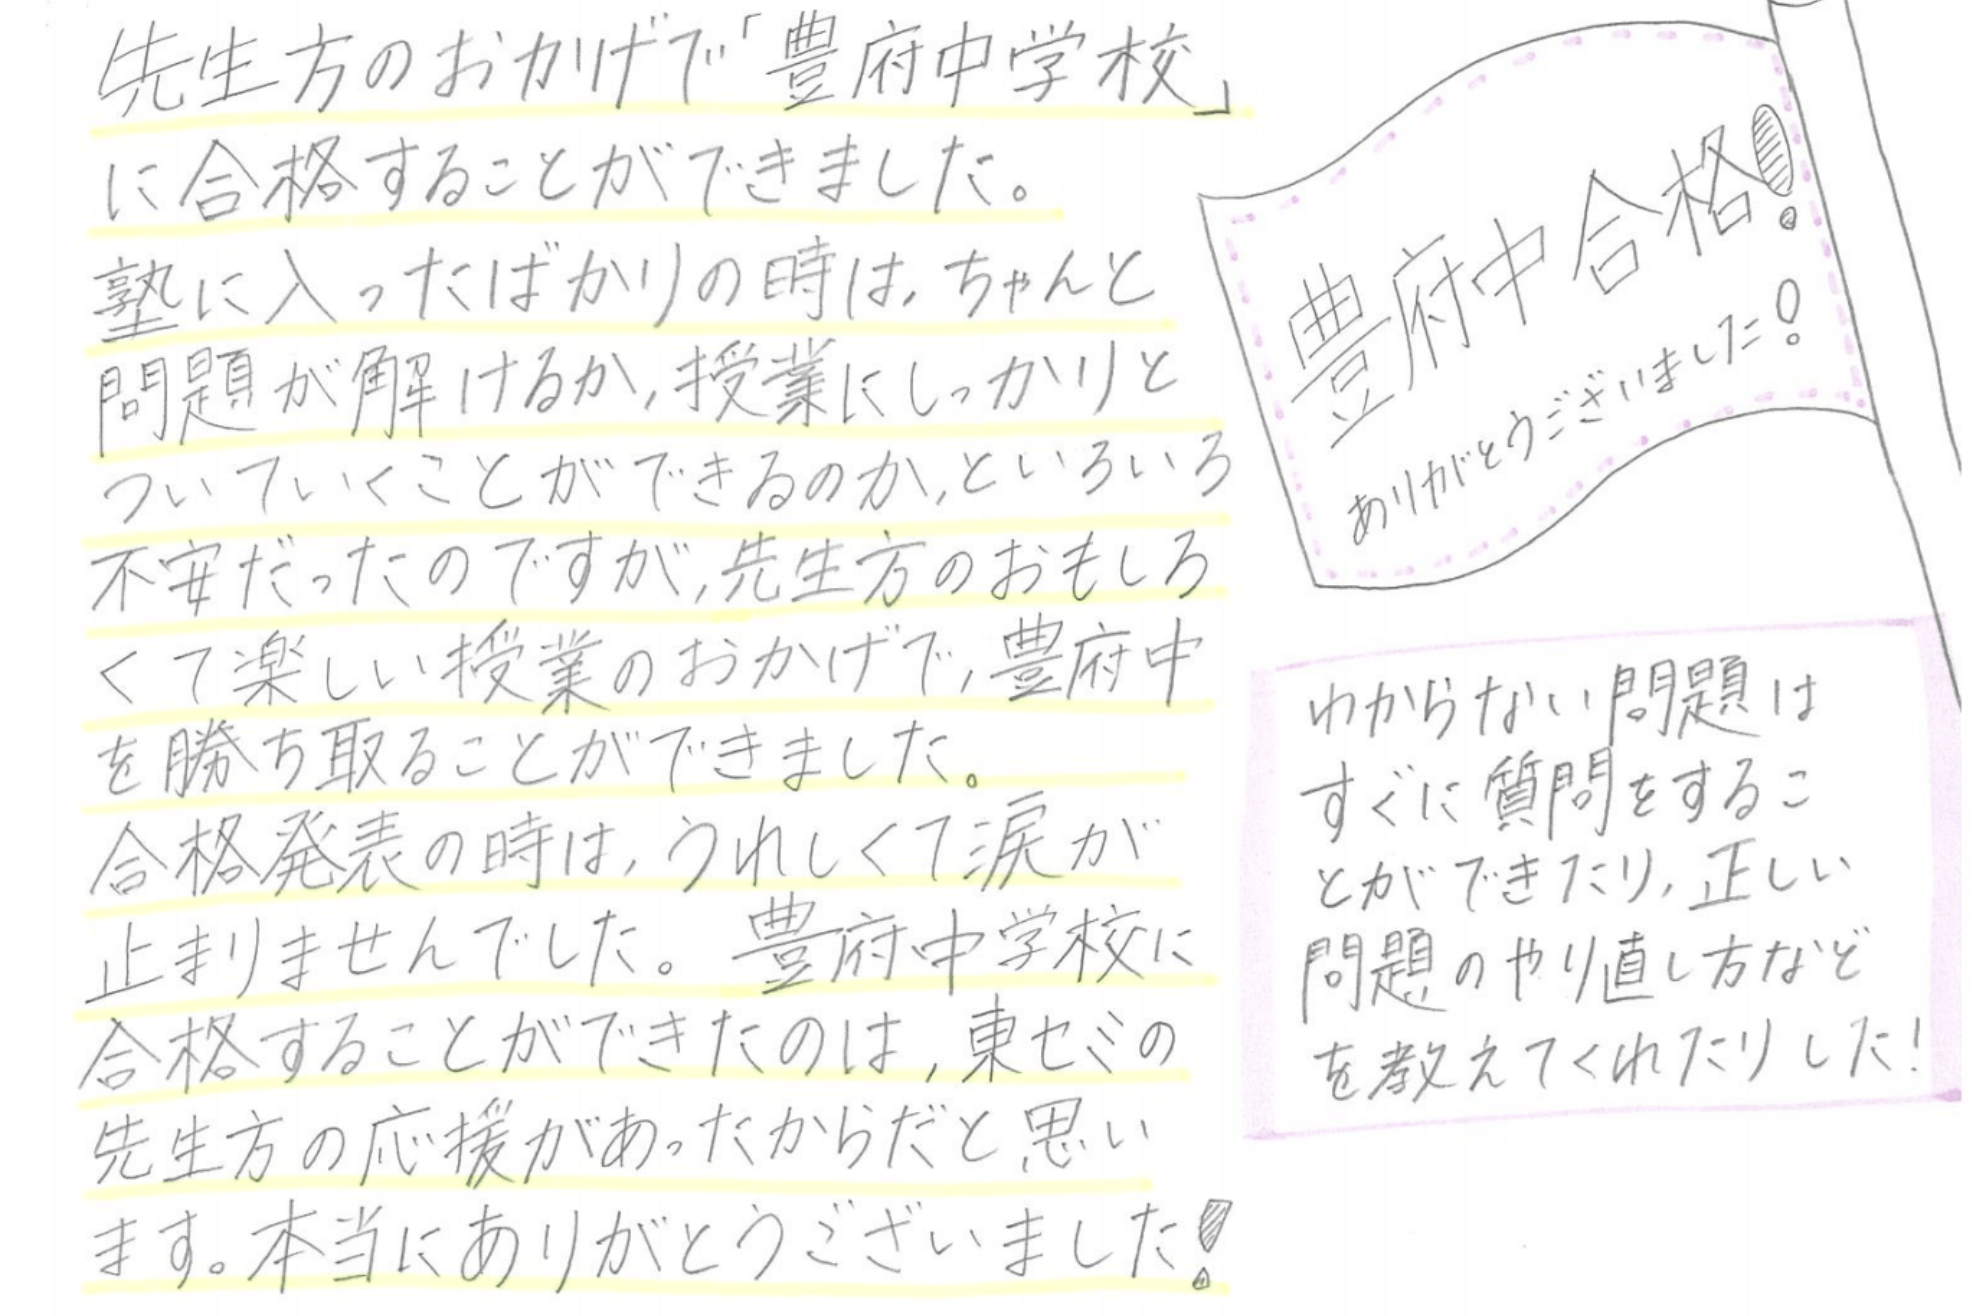 先生方のおかげで「豊府中学校」
に合格することができました。
塾に入ったばかりの時は、ちゃんと
問題が解けるか、授業にしっかりと
ついていくことができるのか、といろいろ
不安だったのですが、先生方のおもしろ
くて楽しい授業のおかげで、豊府中
を勝ち取ることができました。
合格発表の時は、うれしくて涙が
止まりませんでした。豊府中学校に
合格することができたのは、東セミの
先生方の応援があったからだと思い
ます。本当にありがとうございました!
豊府中合格!
ありがとうございました!
わからない問題は
すぐに質問をするこ
とができたり、正しい
問題のやり直し方など
を教えてくれたりした!